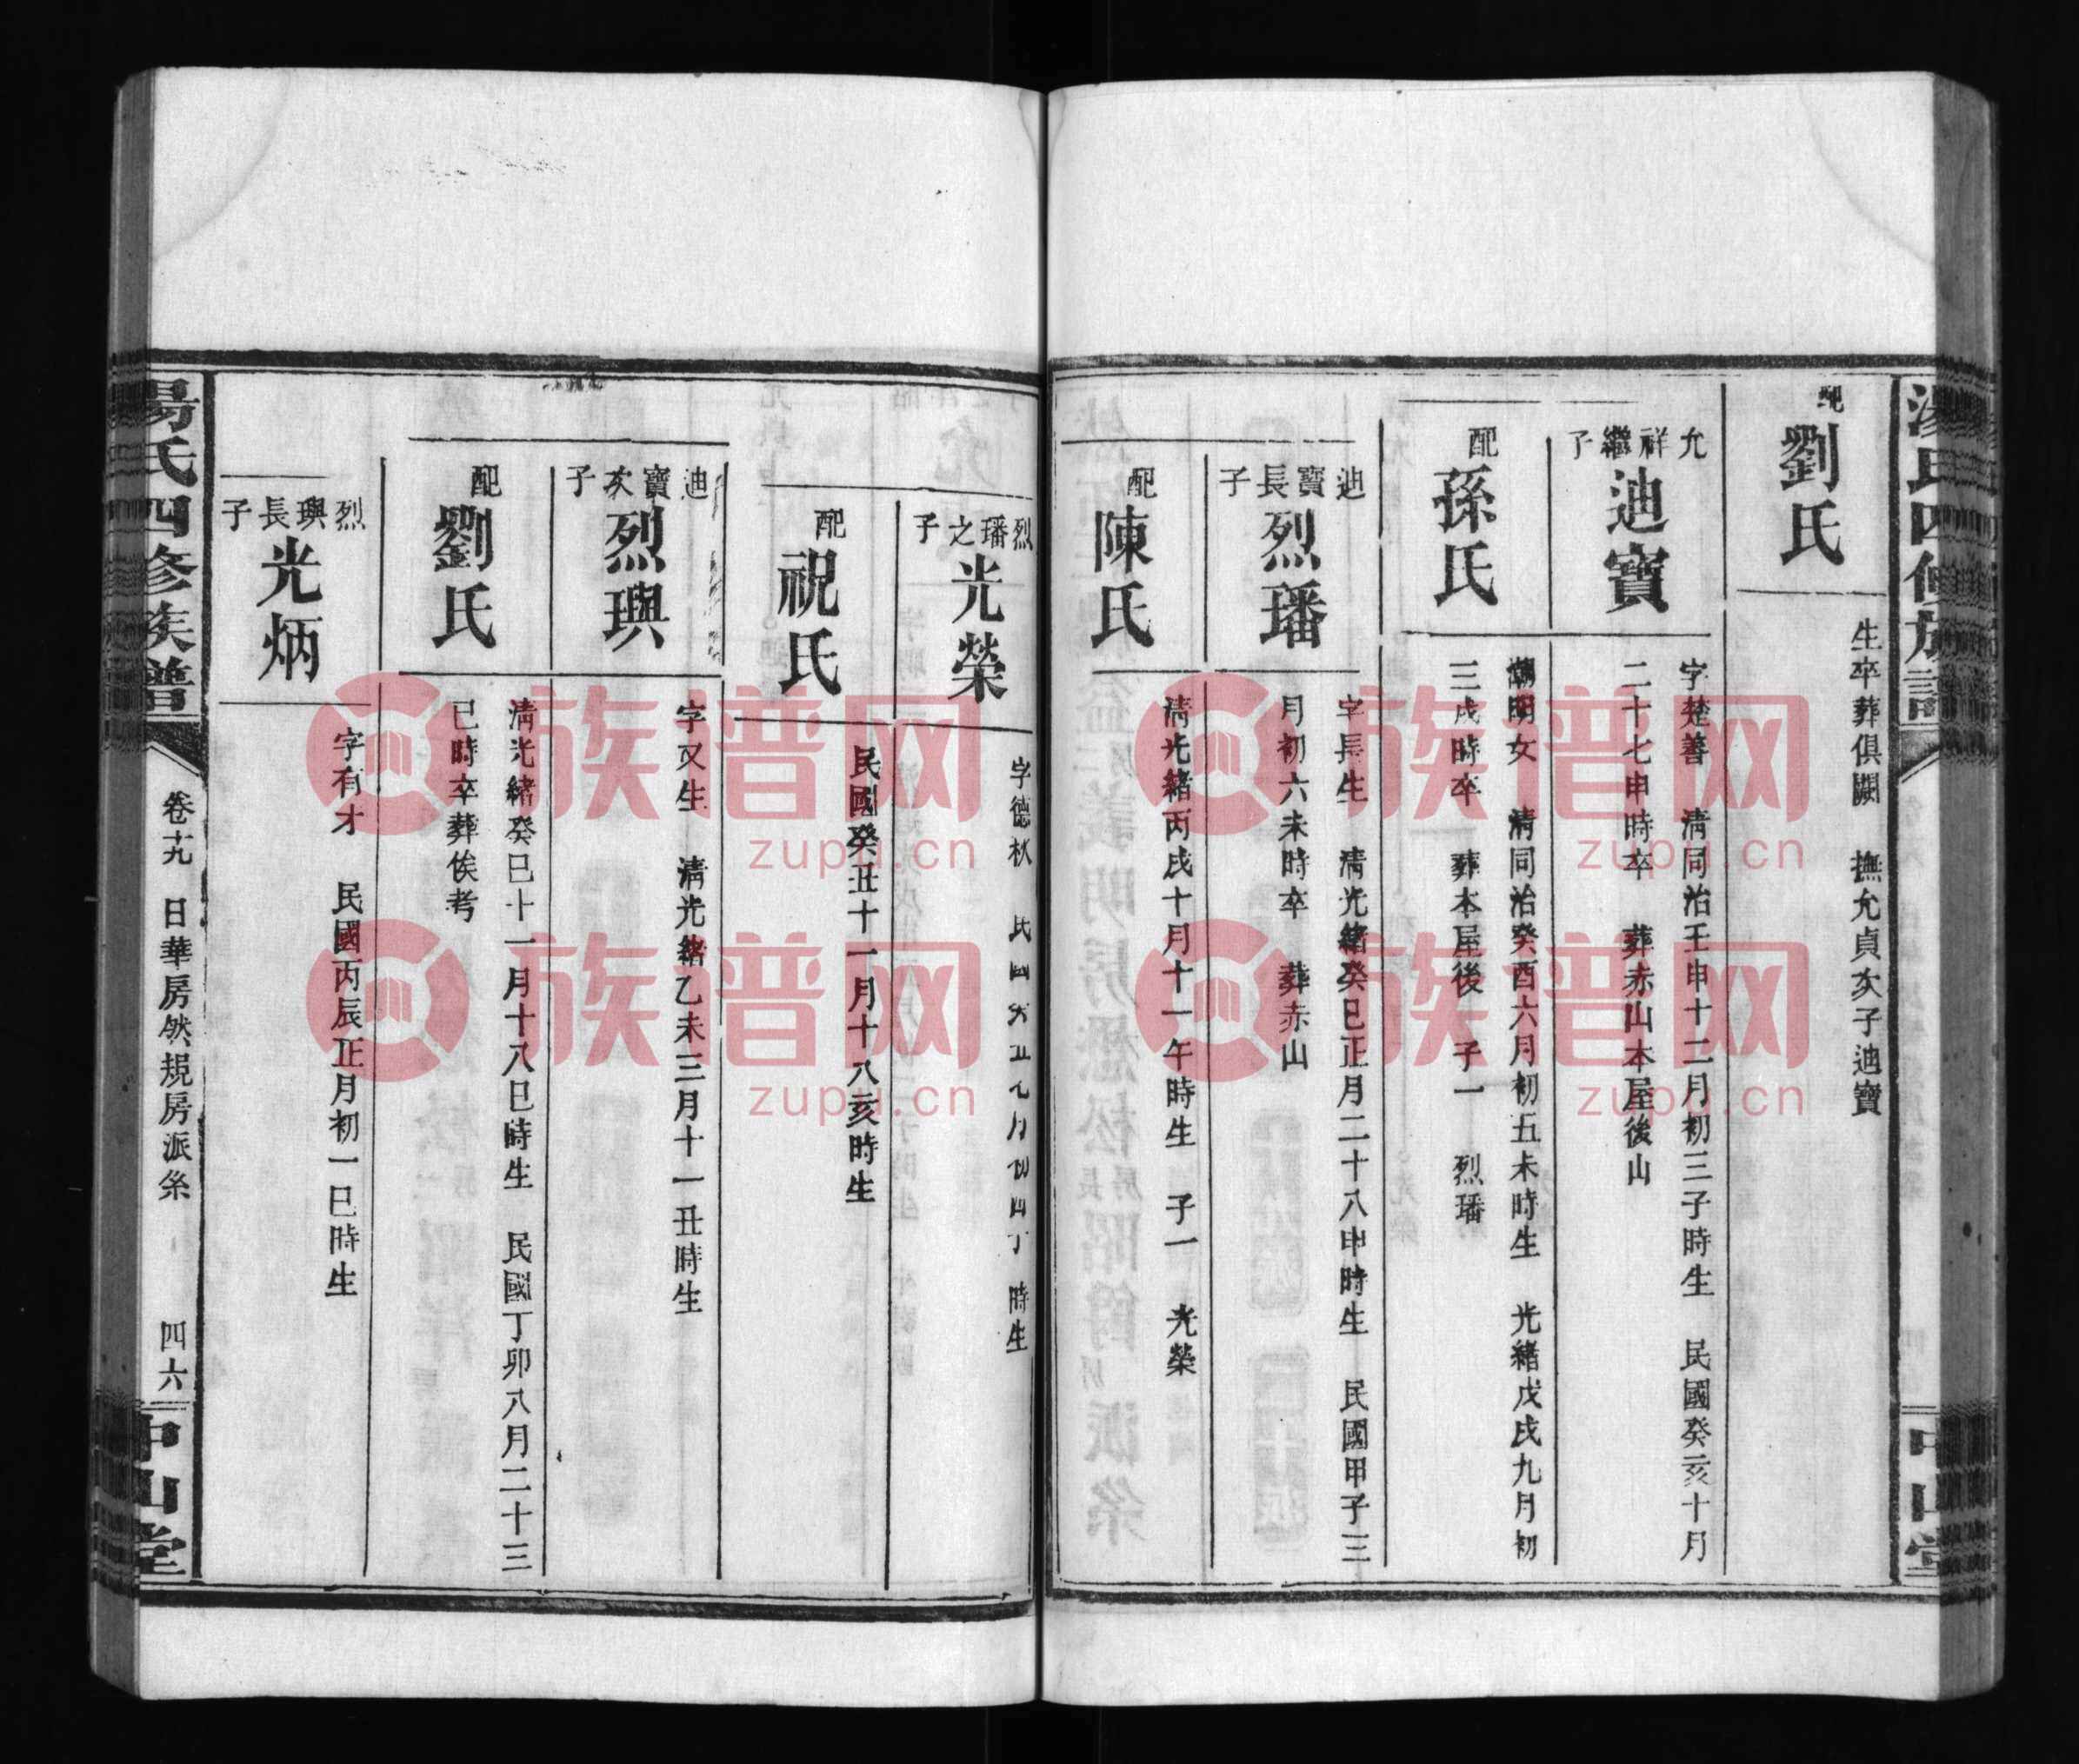 湯氏四修族譜
中山堂
配
劉氏
生卒葬俱闕 撫允貞次子迪寶
允祥繼子
迪寶
字楚善 清同治壬申十二月初三子時生 民國癸亥十月
二十七申時卒 葬赤山本屋後山
配
孫氏
明女 清同治癸酉六月初五未時生 光緒戊戌九月初
三戌時卒 葬本屋後 子一 烈璠
迪寶長子
烈璠
字長生 清光緒癸巳正月二十八申時生 民國甲子三
月初六未時卒 葬赤山
配
陳氏
清光緒丙戌十月十一午時生 子一 光榮
烈璠之子
光榮
字德秋 民國 月初四 時生
配
祝氏
民國癸丑十一月十八亥時生
迪寶次子
烈璵
字又生 清光緒乙未三月十一丑時生
配
劉氏
清光緒癸巳十一月十八巳時生 民國丁卯八月二十三
巳時卒葬俟考
烈璵長子
光炳
字有才 民國丙辰正月初一巳時生
湯氏四修族譜
卷十九 日華房然規房派系
四六
中山堂
族谱网
zupu.cn
族谱网
zupu.cn
族谱网
zupu.cn
族谱网
zupu.cn